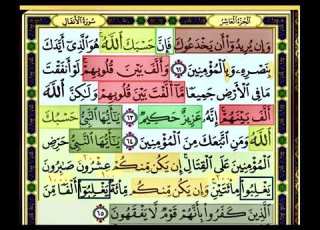 الجزء العاشر
سورة الأنفال
وَإِن يُرِيدُوٓاْ أَن يَخْدَعُوكَ فَإِنَّ حَسْبَكَ ٱللَّهُ هُوَ ٱلَّذِىٓ أَيَّدَكَ
بِنَصْرِهِۦ وَبِٱلْمُؤْمِنِينَ ٦٢ وَأَلَّفَ بَيْنَ قُلُوبِهِمْ لَوْ أَنفَقْتَ
مَا فِى ٱلْأَرْضِ جَمِيعًا مَّآ أَلَّفْتَ بَيْنَ قُلُوبِهِمْ وَلَٰكِنَّ ٱللَّهَ
أَلَّفَ بَيْنَهُمْ إِنَّهُۥ عَزِيزٌ حَكِيمٌ ٦٣ يَٰٓأَيُّهَا ٱلنَّبِىُّ حَسْبُكَ
ٱللَّهُ وَمَنِ ٱتَّبَعَكَ مِنَ ٱلْمُؤْمِنِينَ ٦٤ يَٰٓأَيُّهَا ٱلنَّبِىُّ حَرِّضِ
ٱلْمُؤْمِنِينَ عَلَى ٱلْقِتَالِ إِن يَكُن مِّنكُمْ عِشْرُونَ صَٰبِرُونَ
يَغْلِبُواْ مِاْئَتَيْنِ وَإِن يَكُن مِّنكُم مِّاْئَةٌ يَغْلِبُوٓاْ أَلْفًا مِّنَ
ٱلَّذِينَ كَفَرُواْ بِأَنَّهُمْ قَوْمٌ لَّا يَفْقَهُونَ
٦٥